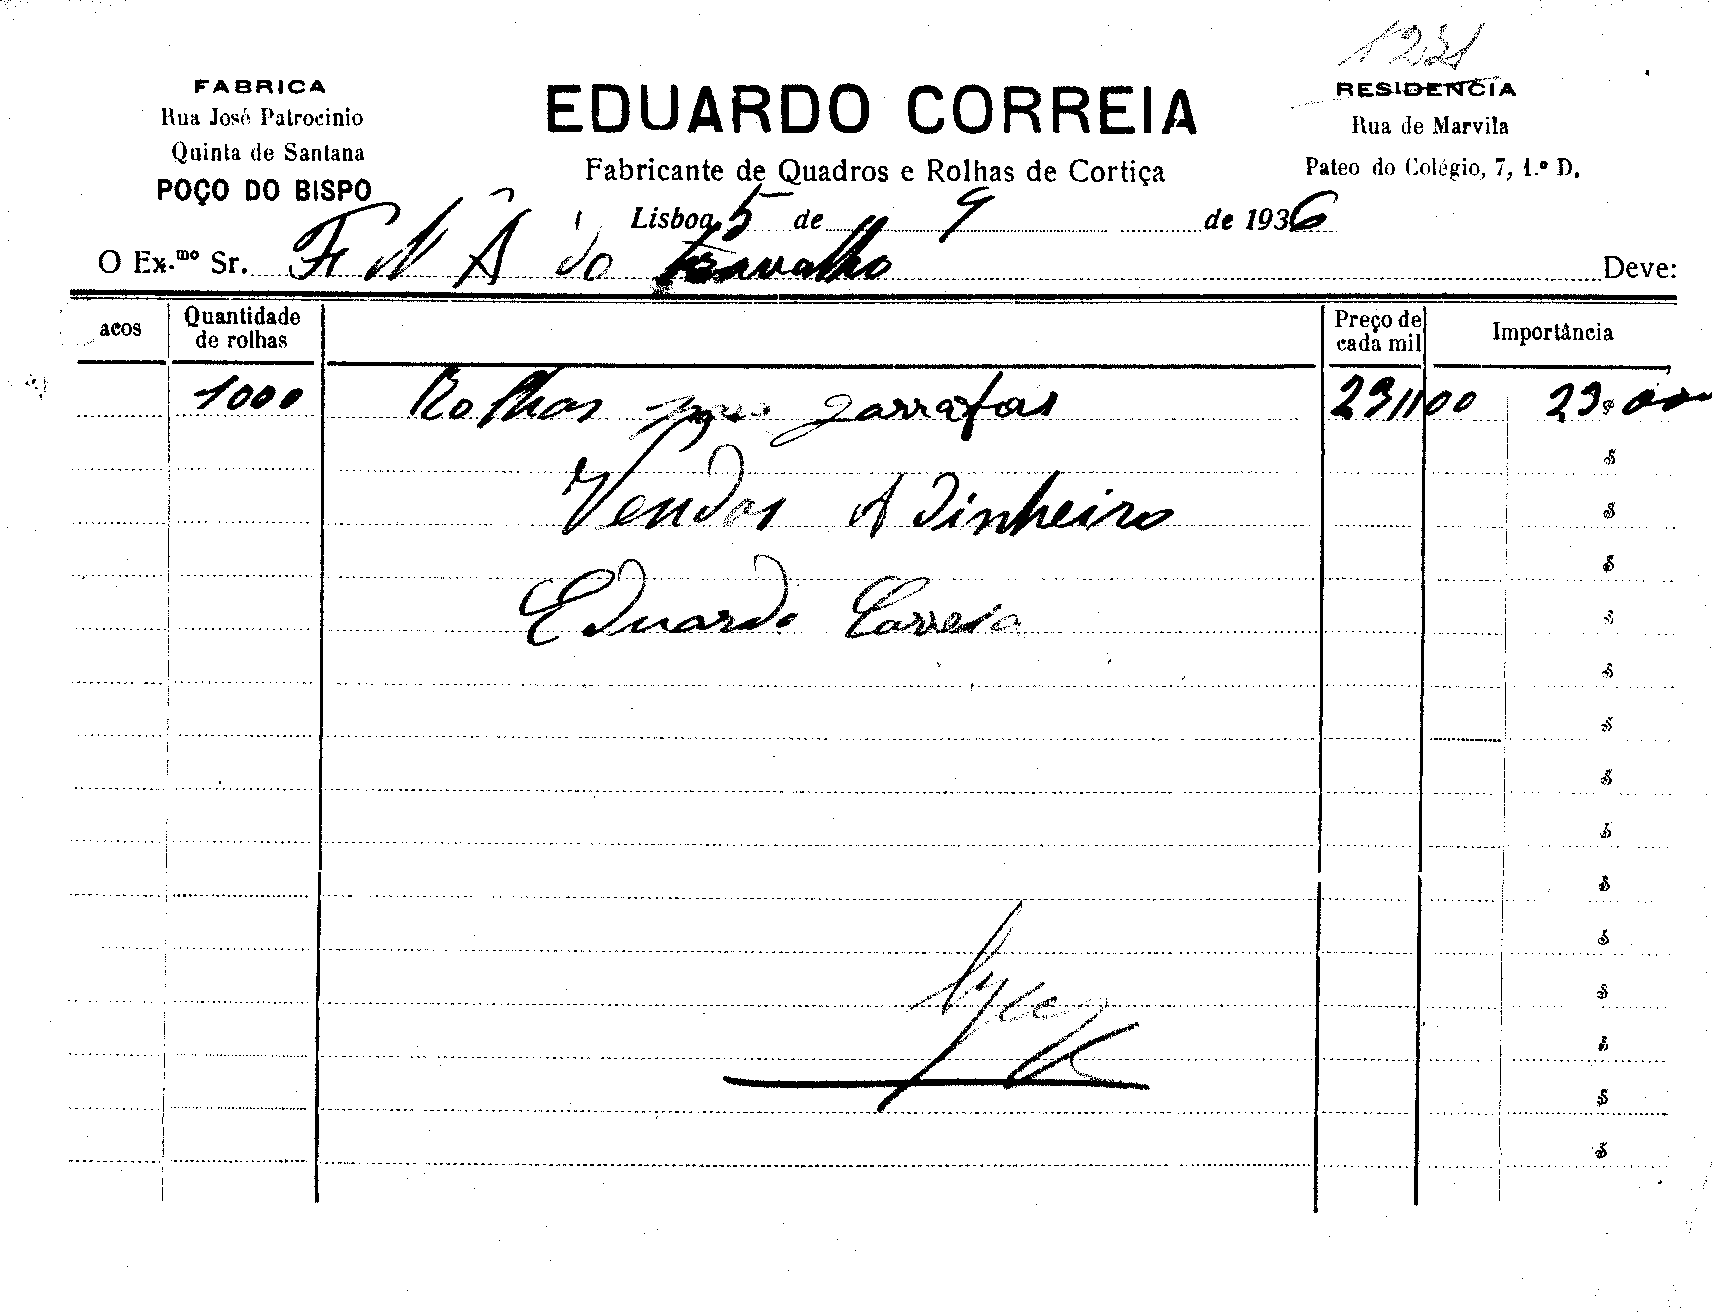 1231
FABRICA
Rua José Patrocinio
Quinta de Santana
POÇO DO BISPO
EDUARDO CORREIA
Fabricante de Quadros e Rolhas de Cortiça
RESIDENCIA
Rua de Marvila
Pateo do Colégio, 7, 1.º D.
Lisboa, 5 de 9 de 1936
O Ex.mo Sr. F. N. A. do Deve:
acos Quantidade de rolhas Preço de cada mil Importância
1000 Rolhas para garrafas 23$00 23$00
$
Vendas A Dinheiro $
$
Eduardo Correia $
$
$
$
$
$
$
$
$
$
$